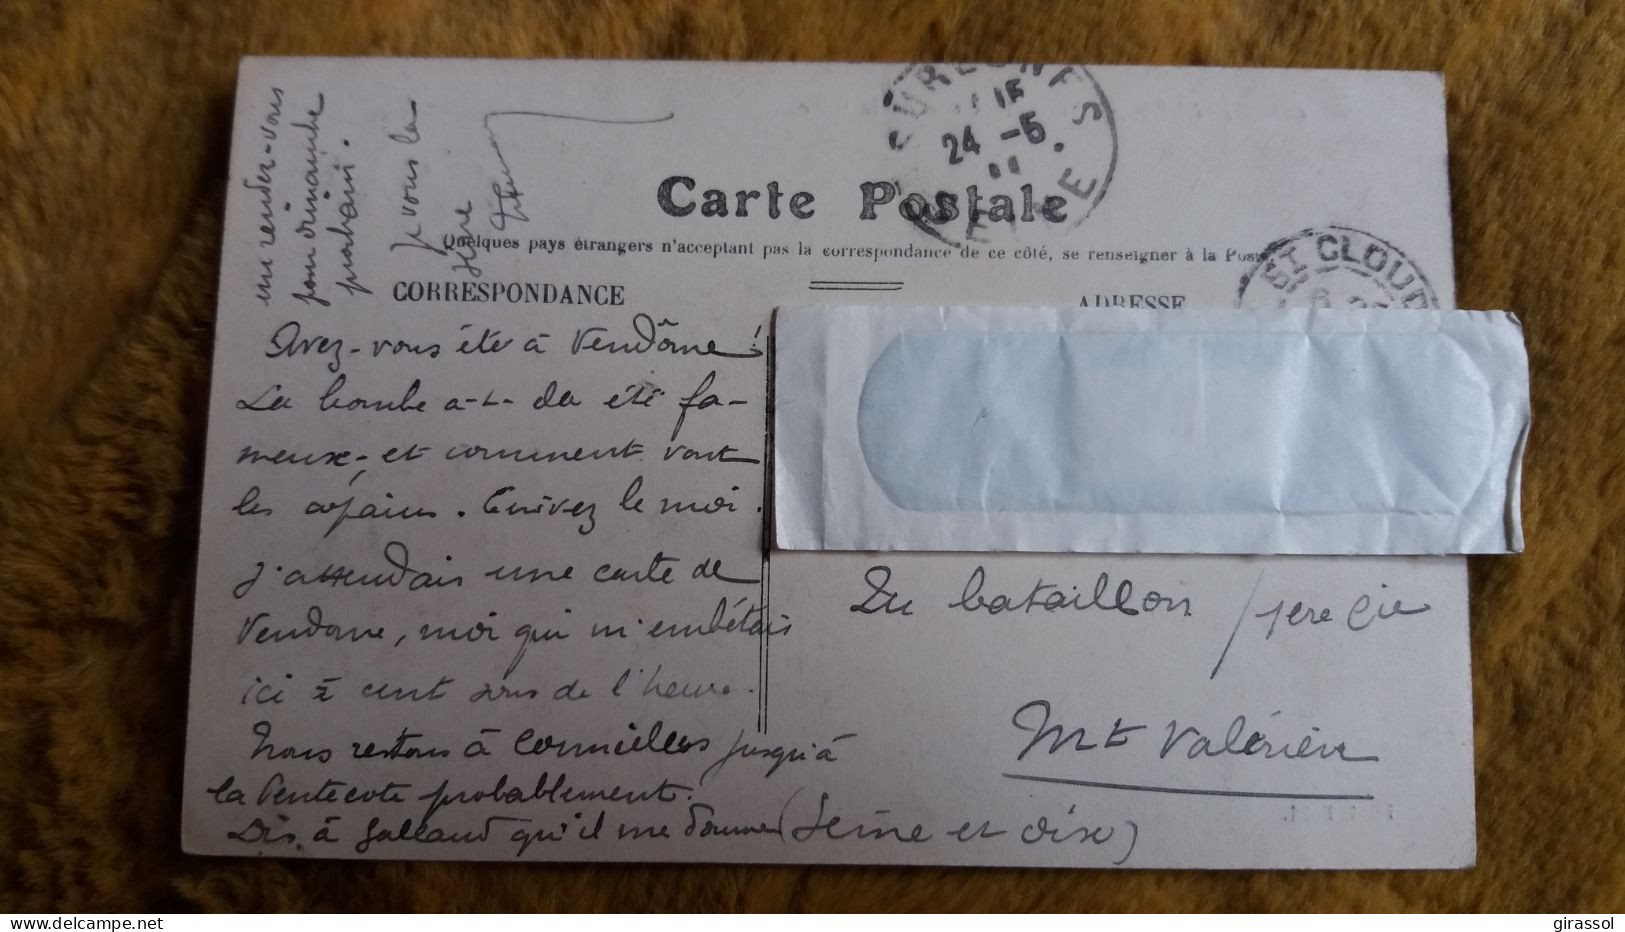 Carte Postale
Quelques pays étrangers n'acceptent pas la correspondance de ce côté, se renseigner à la Poste
CORRESPONDANCE
ADRESSE
SURESNES
24 -5
SEINE
ST CLOUD
Avez-vous été à Vendôme!
La bombe a-t- du été fa-
meuse, et comment vont
les copains. Ecrivez le moi.
J'attendais une carte de
Vendome, moi qui m'embêtais
ici à cent sous de l'heure.
Nous restons à Cormeilles jusqu'à
la Pentecote probablement.
Dis à Galland qu'il me donne
un rendez-vous
pour dimanche
prochain.
Je vous la
serre
Du bataillon / 1ere Cie
Mt Valérien
(Seine et Oise)
delcampe.net
girassol